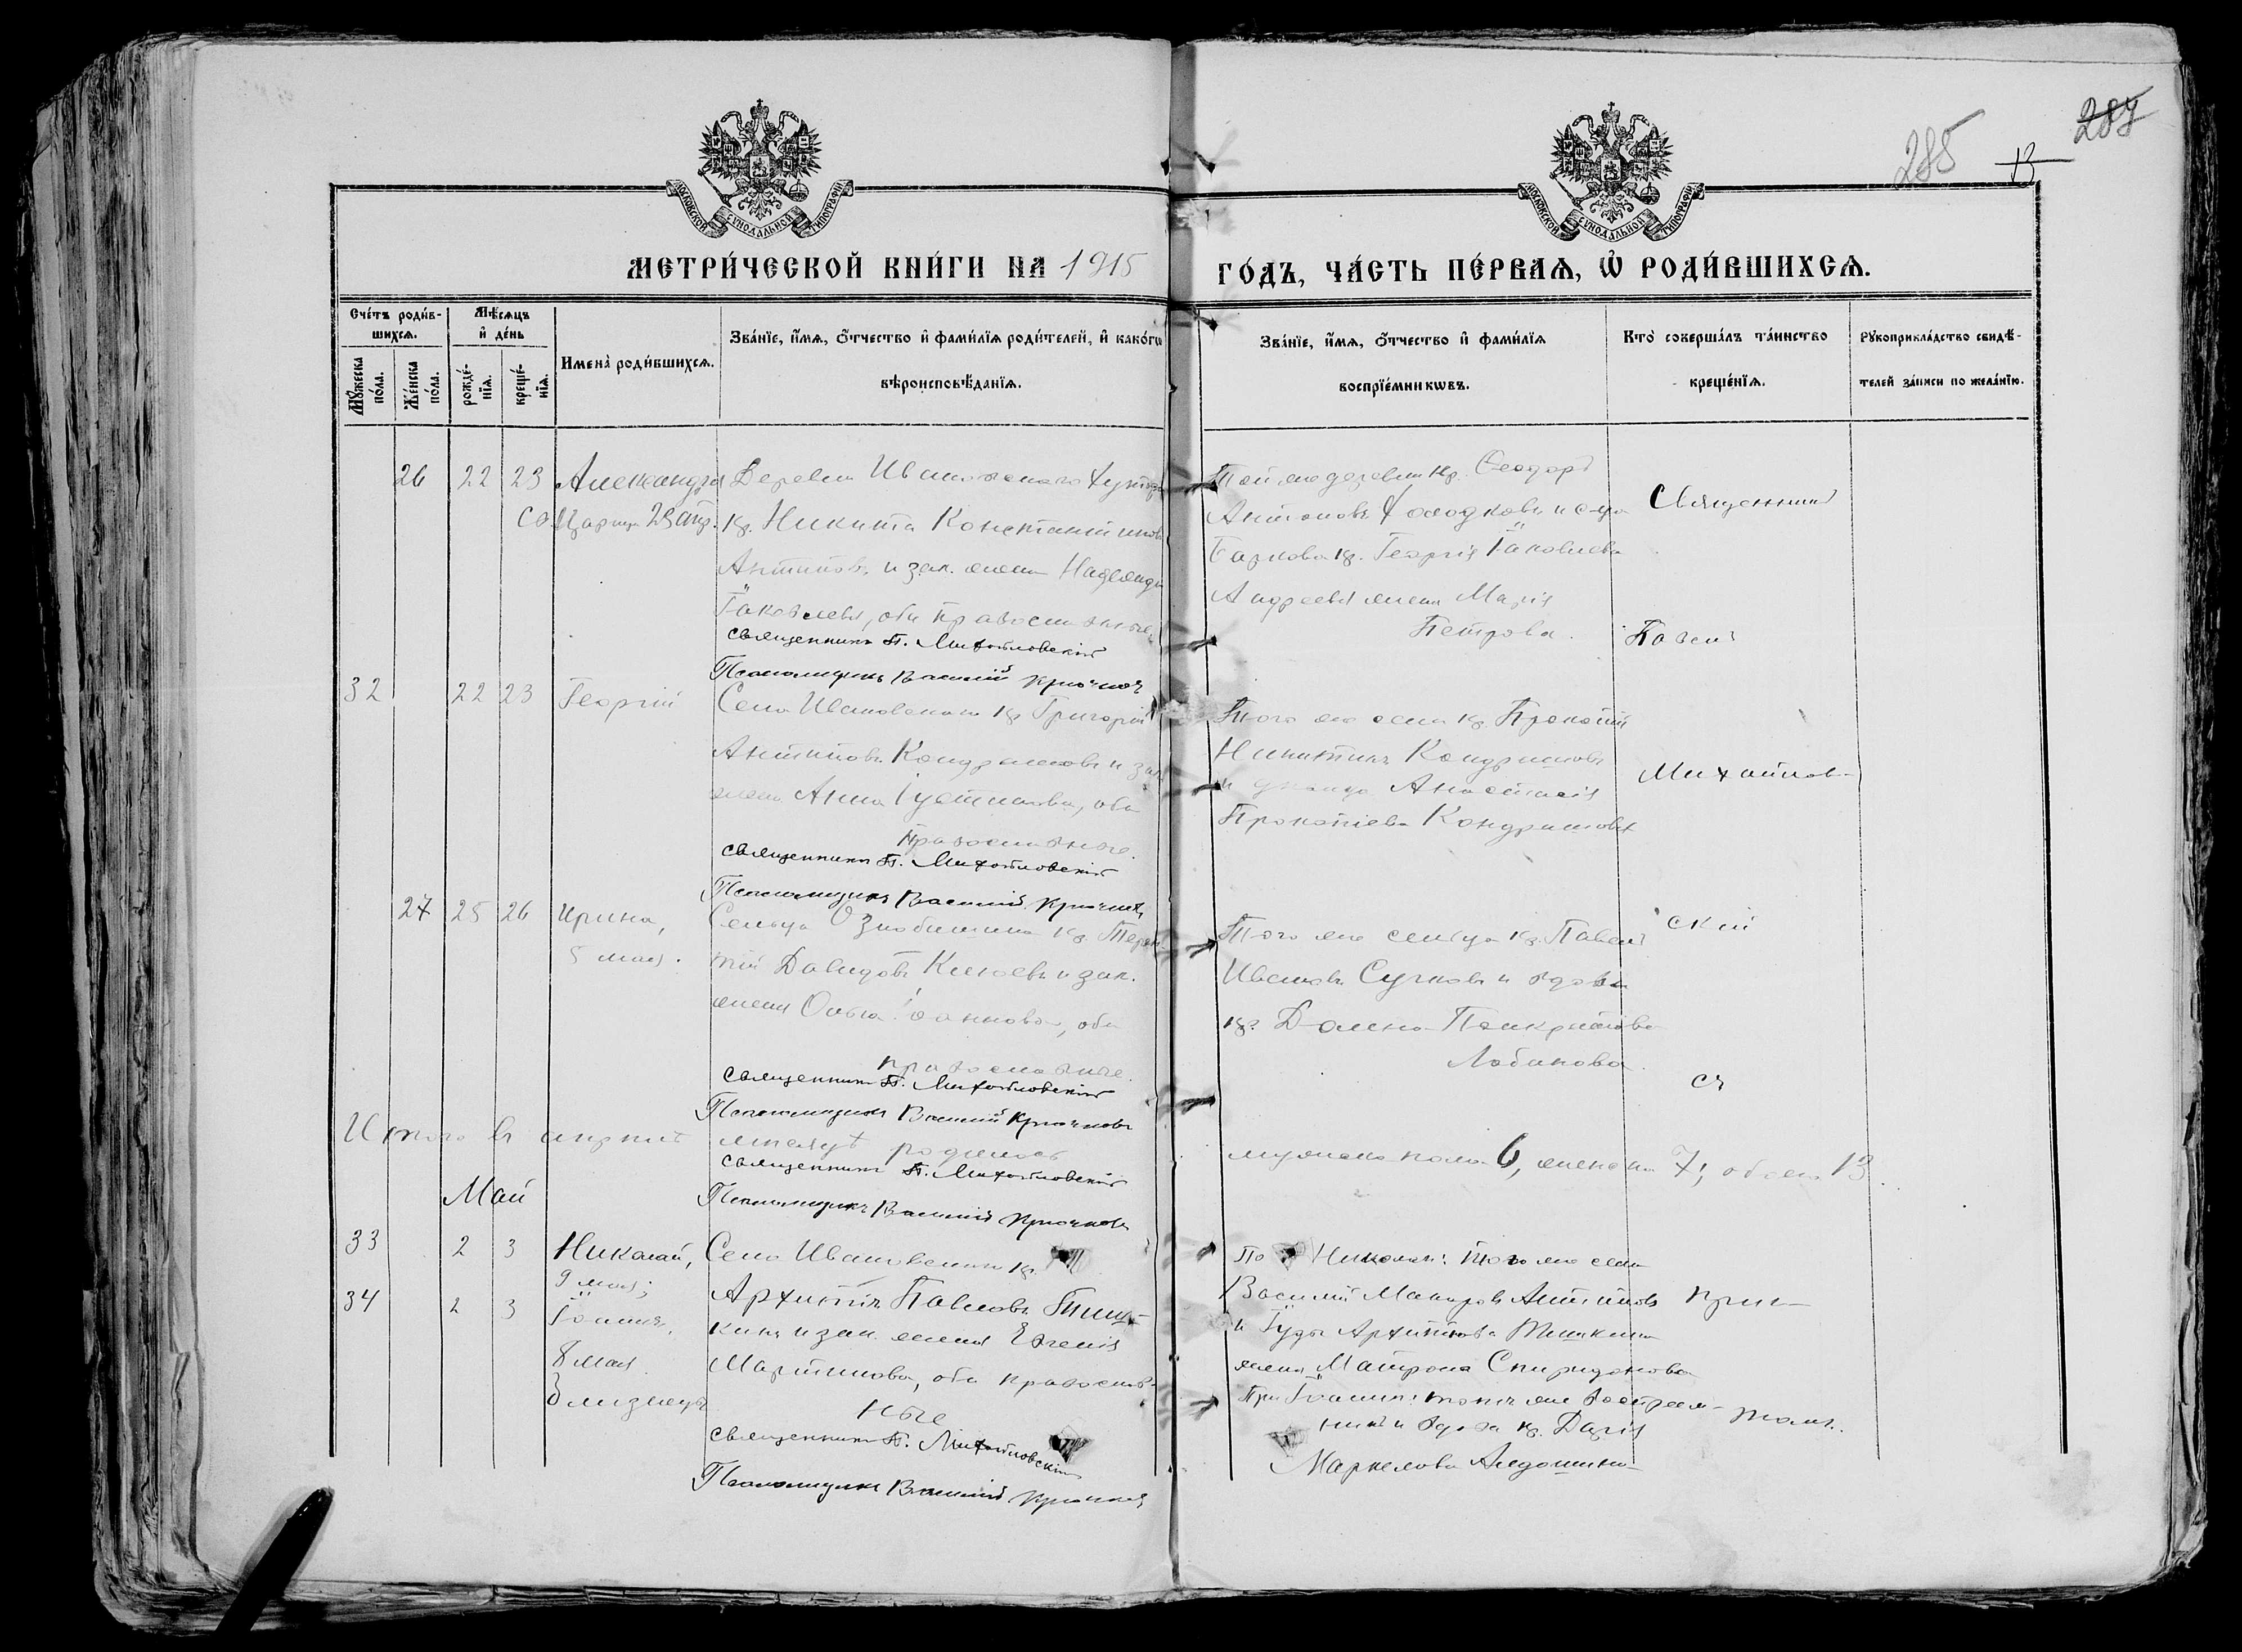 285
13
287
МОСКОВСКОЙ СУНОДАЛЬНОЙ ТИПОГРАФІИ
МОСКОВСКОЙ СУНОДАЛЬНОЙ ТИПОГРАФІИ
МЕТРИ́ЧЕСКОЙ КНИ́ГИ НА 1915 ГО́ДЪ, ЧА́СТЬ ПЕ́РВАѦ, Ѡ҆ РОДИ́ВШИХСѦ.
Сче́тъ роди́в-шихсѧ.
Мѹ́жеска по́ла.
Же́нска по́ла.
Мѣ́сѧцъ и҆ де́нь
рожде́-нїѧ.
креще́-нїѧ.
Имена̀ роди́вшихсѧ.
Зва́нїе, и҆́мѧ, ѻ҆́тчество и҆ фами́лїѧ роди́телей, и҆ како́гѡ
вѣроисповѣ́данїѧ.
Зва́нїе, и҆́мѧ, ѻ҆́тчество и҆ фами́лїѧ
воспрїе́мникѡвъ.
Кто̀ соверша́лъ та́инство
креще́нїѧ.
Рѹкоприкла́дство свидѣ́-
телей за́писи по жела́нїю.
26 22 23 Александра
Царица 23 апр.
Деревни Ивановскаго Хутора
кр. Никита Константиновъ
Антиповъ и зак. жена Надежда
Іаковлева, оба православные
Священникъ П. Михайловскій
Псаломщикъ Василій Крючковъ
Той же деревни кр. Ѳеодоръ
Антоновъ Холодковъ и с-ца
Баркова кр. Георгія Іаковлева
Андреева жена Марія
Петрова.
Священникъ
Павелъ
32 22 23 Георгій
Села Ивановскаго кр. Григорій
Антиповъ Кондрашовъ и зак.
жена Анна Іустинова, оба
православные.
Священникъ П. Михайловскій
Псаломщикъ Василій Крючковъ
Того же села кр. Прокопій
Никитинъ Кондрашовъ
и Анастасія
Прокопіева Кондрашова
Михайлов-
27 25 26 Ирина,
5 мая.
Сельца Ознобишина кр. Терен-
тій Давидовъ и зак.
жена Ольга Іоаннова, оба
православные.
Священникъ П. Михайловскій
Псаломщикъ Василій Крючковъ
Того же сельца кр. Павелъ
Ивановъ Сучковъ и вдова
кр. Домна Панкратова
Лобанова.
скій
съ
Итого въ апрѣлѣ мѣсяцѣ родилось
мужеска пола 6, женска 7; обоего 13.
Священникъ П. Михайловскій
Псаломщикъ Василій Крючковъ
Май
33 2 3 Николай,
9 мая;
34 2 3 Іоаннъ,
8 мая.
близнецы
Села Ивановскаго кр.
Архиппъ Павловъ Тиш-
кинъ и зак. жена Евгенія
Мартинова, оба православ-
ные
Священникъ П. Михайловскій
Псаломщикъ Василій Крючковъ
Николаѣ: того же села
Василій Макаровъ Антиповъ
и Іуды Архиппова Тишкина
жена Матрона Спиридонова
При Іоаннѣ: тотъ же воспріем-
никъ и вдова кр. Дарія
Маркелова Алдошина
прич-
томъ.